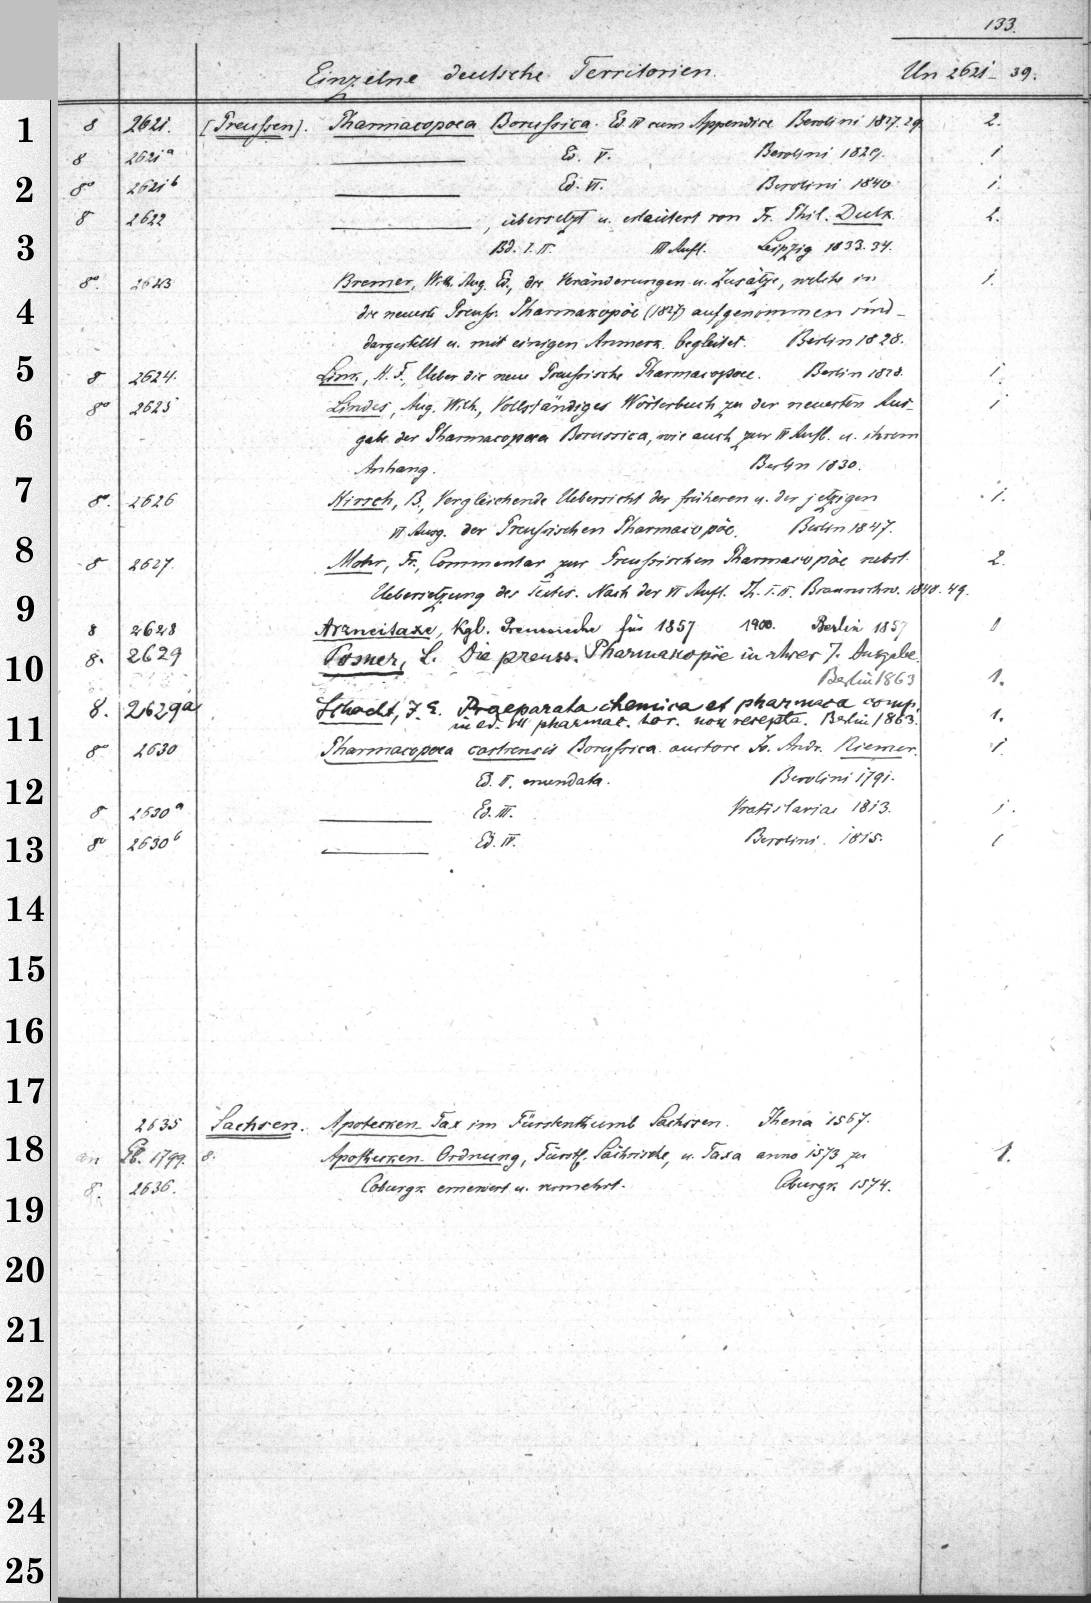 133.
Einzelne deutsche Territorien. Un 2621–39.
1 8 2621. [Preussen]. Pharmacopoea Borussica. Ed. IV cum Appendice Berolini 1827.29. 2.
8 2621a ——— Ed. V. Berolini 1829. 1
2 8o 2621b ——— Ed. VI. Berolini 1846. 1.
8 2622 ———, übersetzt u. erläutert von Fr. Phil. Dulk. 2.
3 Bd. I. II. III Aufl. Leipzig 1833.34.
8o. 2623 Bremer, Wilh. Aug. Ed., die Veränderungen u. Zusätze, welche in 1.
4 die neueste Preuss. Pharmakopöe (1827) aufgenommen sind –
dargestellt u. mit einigen Anmerk. begleitet. Berlin 1828.
5 8 2624. Link, H. F., Ueber die neue Preussische Pharmacopoee. Berlin 1828. 1.
8o 2625 Lindes, Aug. Wilh., Vollständiges Wörterbuch zu der neuesten Aus- 1
6 gabe der Pharmacopoea Borussica, wie auch zur IV Aufl. u. ihrem
Anhang. Berlin 1830.
7 8o. 2626 Hirsch, B., Vergleichende Uebersicht der früheren u. der jetzigen 1.
VI Ausg. der Preussischen Pharmacopöe. Berlin 1847.
8 8 2627. Mohr, Fr., Commentar zur Preussischen Pharmacopöe nebst 2.
Uebersetzung des Textes. Nach der VI Aufl. Th. I. II. Braunschw. 1848.49.
9 8 2628 Arzneitaxe, Kgl. Preussische für 1857 1900. Berlin 1857 1
10 8. 2629 Posner, L. Die preuss. Pharmakopöe in ihrer 7. Ausgabe.
Berlin 1863 1.
8. 2629a Schacht, J. E. Praeparata chemica et pharmaca comp.
11 in ed. VII pharmac. bor. non recepta. Berlin 1863. 1.
8o 2630 Pharmacopoea castrensis Borussica auctore Jo. Andr. Riemer. 1
12 Ed. II. emendata. Berolini 1791.
8 2630a ——— Ed. III. Vratislaviae 1813. 1.
13 8o 2630b ——— Ed. IV. Berolini. 1815. 1
14
15
16
17
2635 Sachsen. Apotecken Tax im Fürstenthumb Sachssen. Jhena 1567.
18 an 1799. 8. Apothecken-Ordnung, Fürstl. Sächsische, u. Taxa anno 1573 zu 1.
8. 2636. Coburgk ernewert u. vermehrt. Coburgk 1574.
19
20
21
22
23
24
25